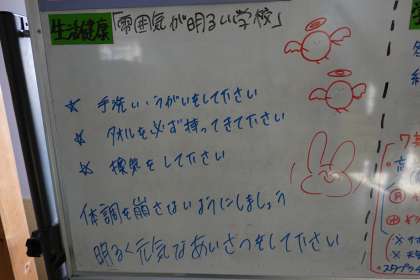 生活健康 「雰囲気が明るい学校」
☆ 手洗い、うがいをしてださい
☆ タオルを必ず持ってきてださい
☆ 換気をしてださい
体調を崩さないようにしましょう
明るく元気なあいさつをしてださい